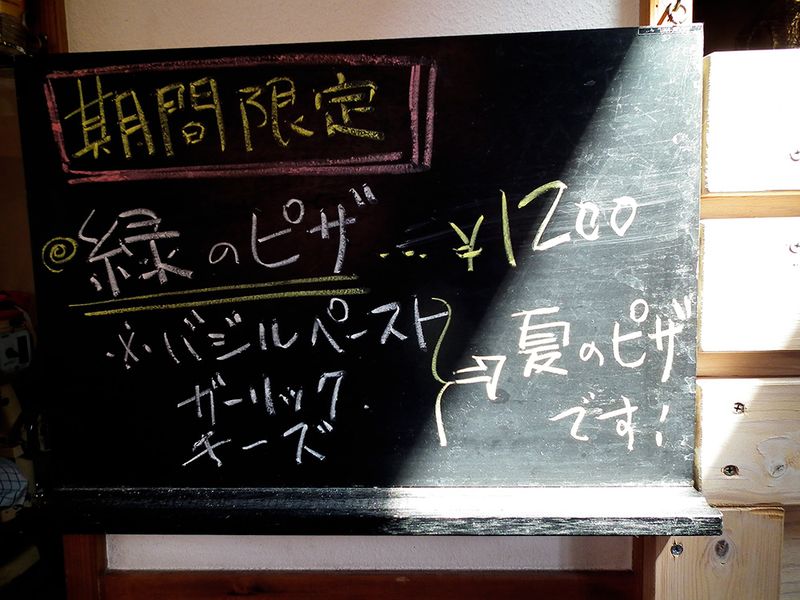 期間限定
緑のピザ … ¥1200
※バジルペースト
ガーリック
チーズ
⇒ 夏のピザ
です!